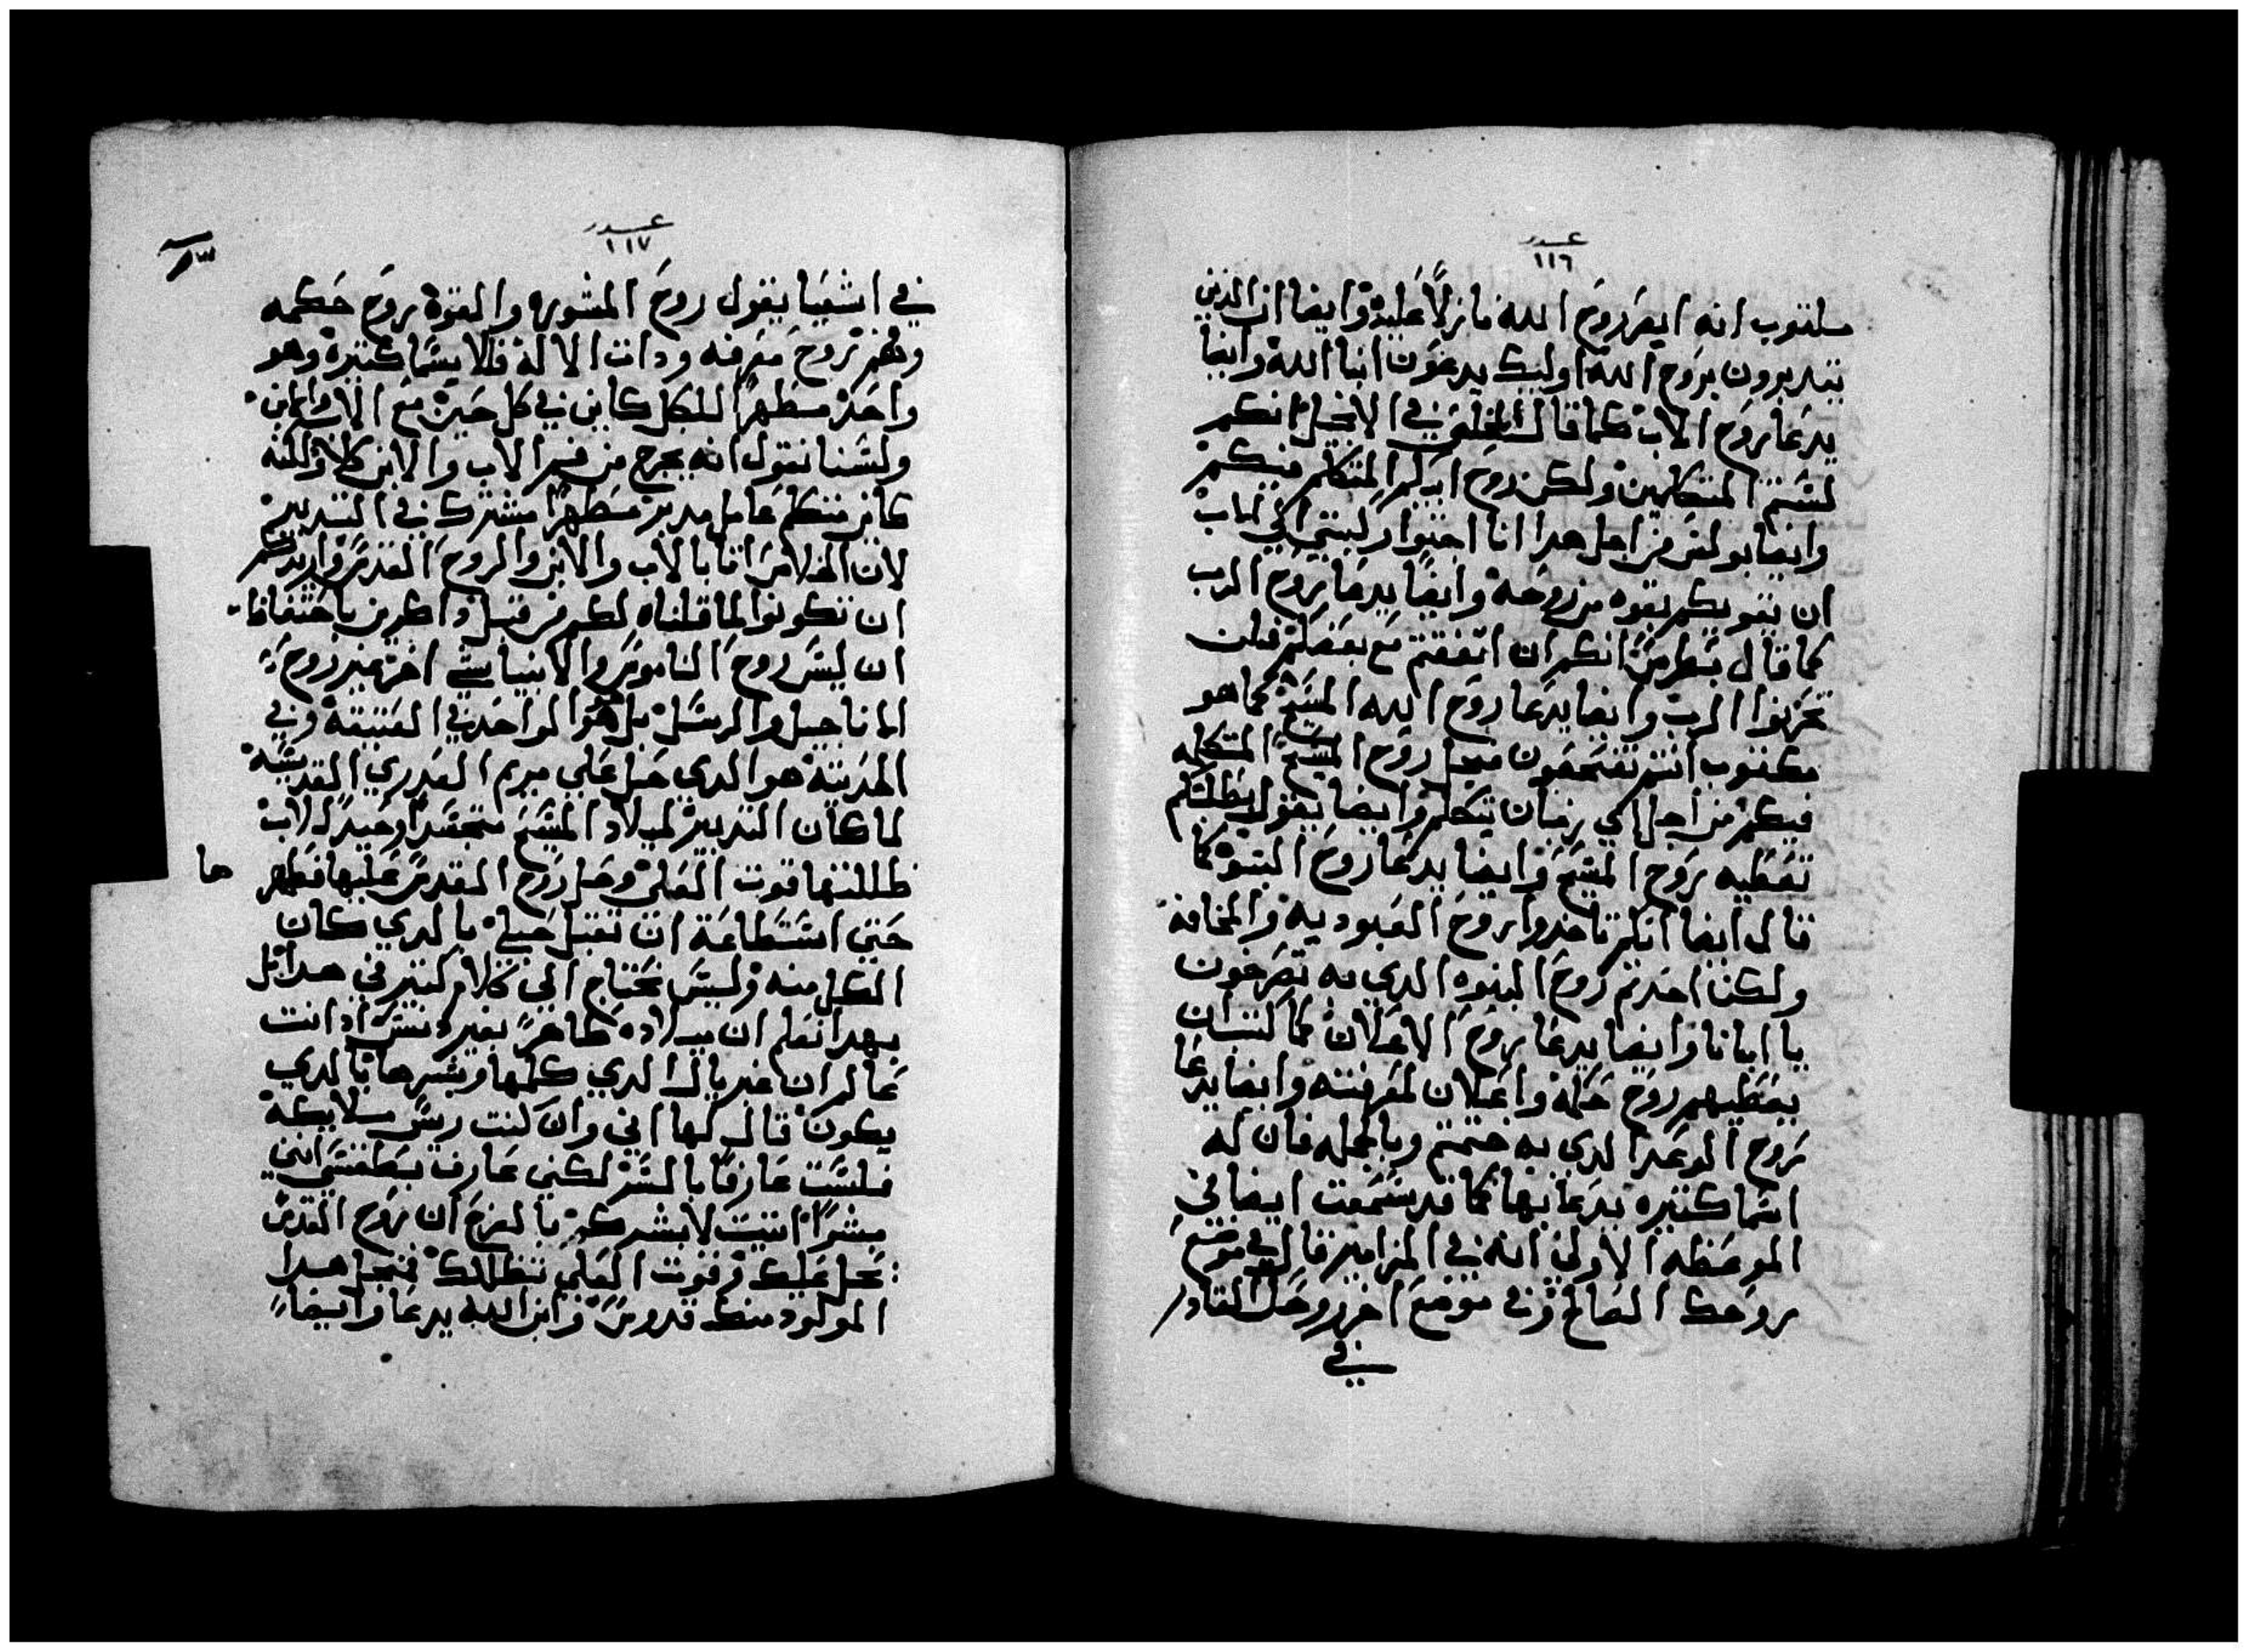 عدد
١١٦
مكتوب انه ابصر روح الله نازلاً عليه وايضا ان الدين
يتدبرون بروح الله اوليك يدعون ابنا الله وايضا
يدعا روح الاب كما قال المخلص في الانجيل انكم
لستم المتكلمين ولكن روح ابيكم المتكلم فيكم
وايضا بولس من اجل هدا انا احنوا ركبتي الي الاب
ان يقويكم بقوه من روحه وايضاً يدعا بروح الرب
كما قال بطرس انكم ان اتفقتم مع بعضكم فلن
تحزنوا الرب وايضا يدعا روح الله المسيح كما هو
مكتوب انتم روح المسيح المتكلم
فيكم من اجل اي زمان يتكلم وايضا يقول بطلبتكم
تعطيه بروح المسيح وايضا يدعا روح البنوه كما
قال ايضا انكم لم تاخدوا روح العبوديه والمخافه
ولكن اخدتم روح البنوه الدي به تصرخون
يا ابانا وايضا يدعا بروح الاعلان كما كتب ان
يعطيهم روح حكمه واعلان لمعرفته وايضا يدعا
بروح الوعد الدي به ختمتم وبالجمله فان له
اسما كتيره يدعا بها كما قد سمعت ايضا في
الموعظه الاولي انه في المزامير قال في موضع
بروحك الصالح وفي موضع اخر روحك القادر
في
عدد
١١٧
في اشعيا يقول روح المشوره والقوه بروح حكمه
وفهم بروح معرفه ودات الاله فالاسما كتيره وهو
واحد مطهراً للكل كاين في كل حين مع الاب والابن
ولسنا نقول انه يخرج من فم الاب والابن كلا ولكنه
كاين متكلم عامل مدبر مطهراً مشترك في التدبير
لان الخلاص اتا بالاب والابن والروح القدس واريدكم
ان تكونوا لما قلناه لكم من قبل داكرين باحتفاظ
ان ليس روح الناموس والانبيا شي اخر غير روح
الاناجيل والرسل بل هو الواحد في العتيقه وفي
الحديته هو الدي حل علي مريم العدري القديسه
لما كان التدبير لميلاد المسيح متجسداً وحيد الاب
ظللتها قوت العلي وحل روح القدس عليها فطهرها
حتي استطاعة ان تقبل حبلي بالدي كان
الكل منه وليس نحتاج الي كلام كتير في هدا بل
بهدا نعلم ان ميلاده طاهرً بغير دنس اد انت
عالم ان غبريال الدي كلمها وبشرها بالدي
يكون قال لها اني وان كنت ريس ملايكه
فلست عارفاً بالسر لكني عارف
مبشراً اتيت لابشرك بالفرح ان روح القدس
يحل عليك وقوت العلي تظللك فمن اجل هدا
المولود منك قدوس وابن الله يدعا وايضا